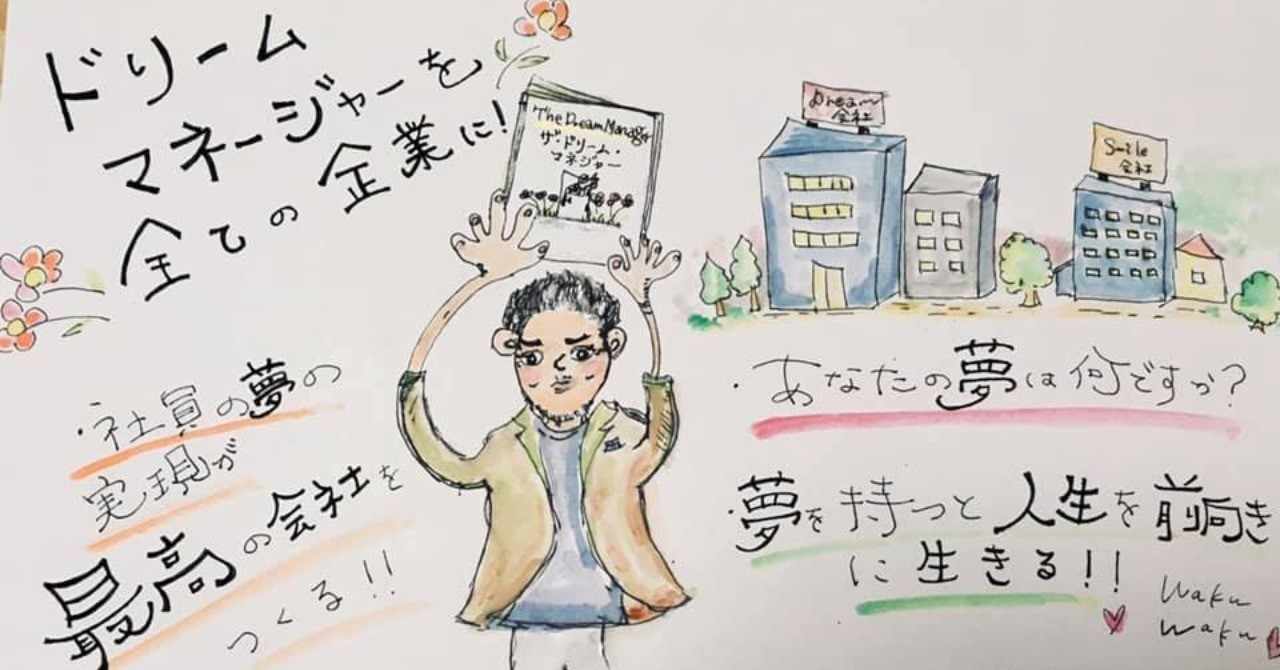 ドリーム
マネージャーを
全ての企業に!
The Dream Manager
ザ・ドリーム・
マネジャー
Dream
会社
Smile
会社
・社員の夢の
実現が
最高の会社を
つくる!!
・あなたの夢は何ですか?
・夢を持つと人生を前向き
に生きる!!
Waku
Waku